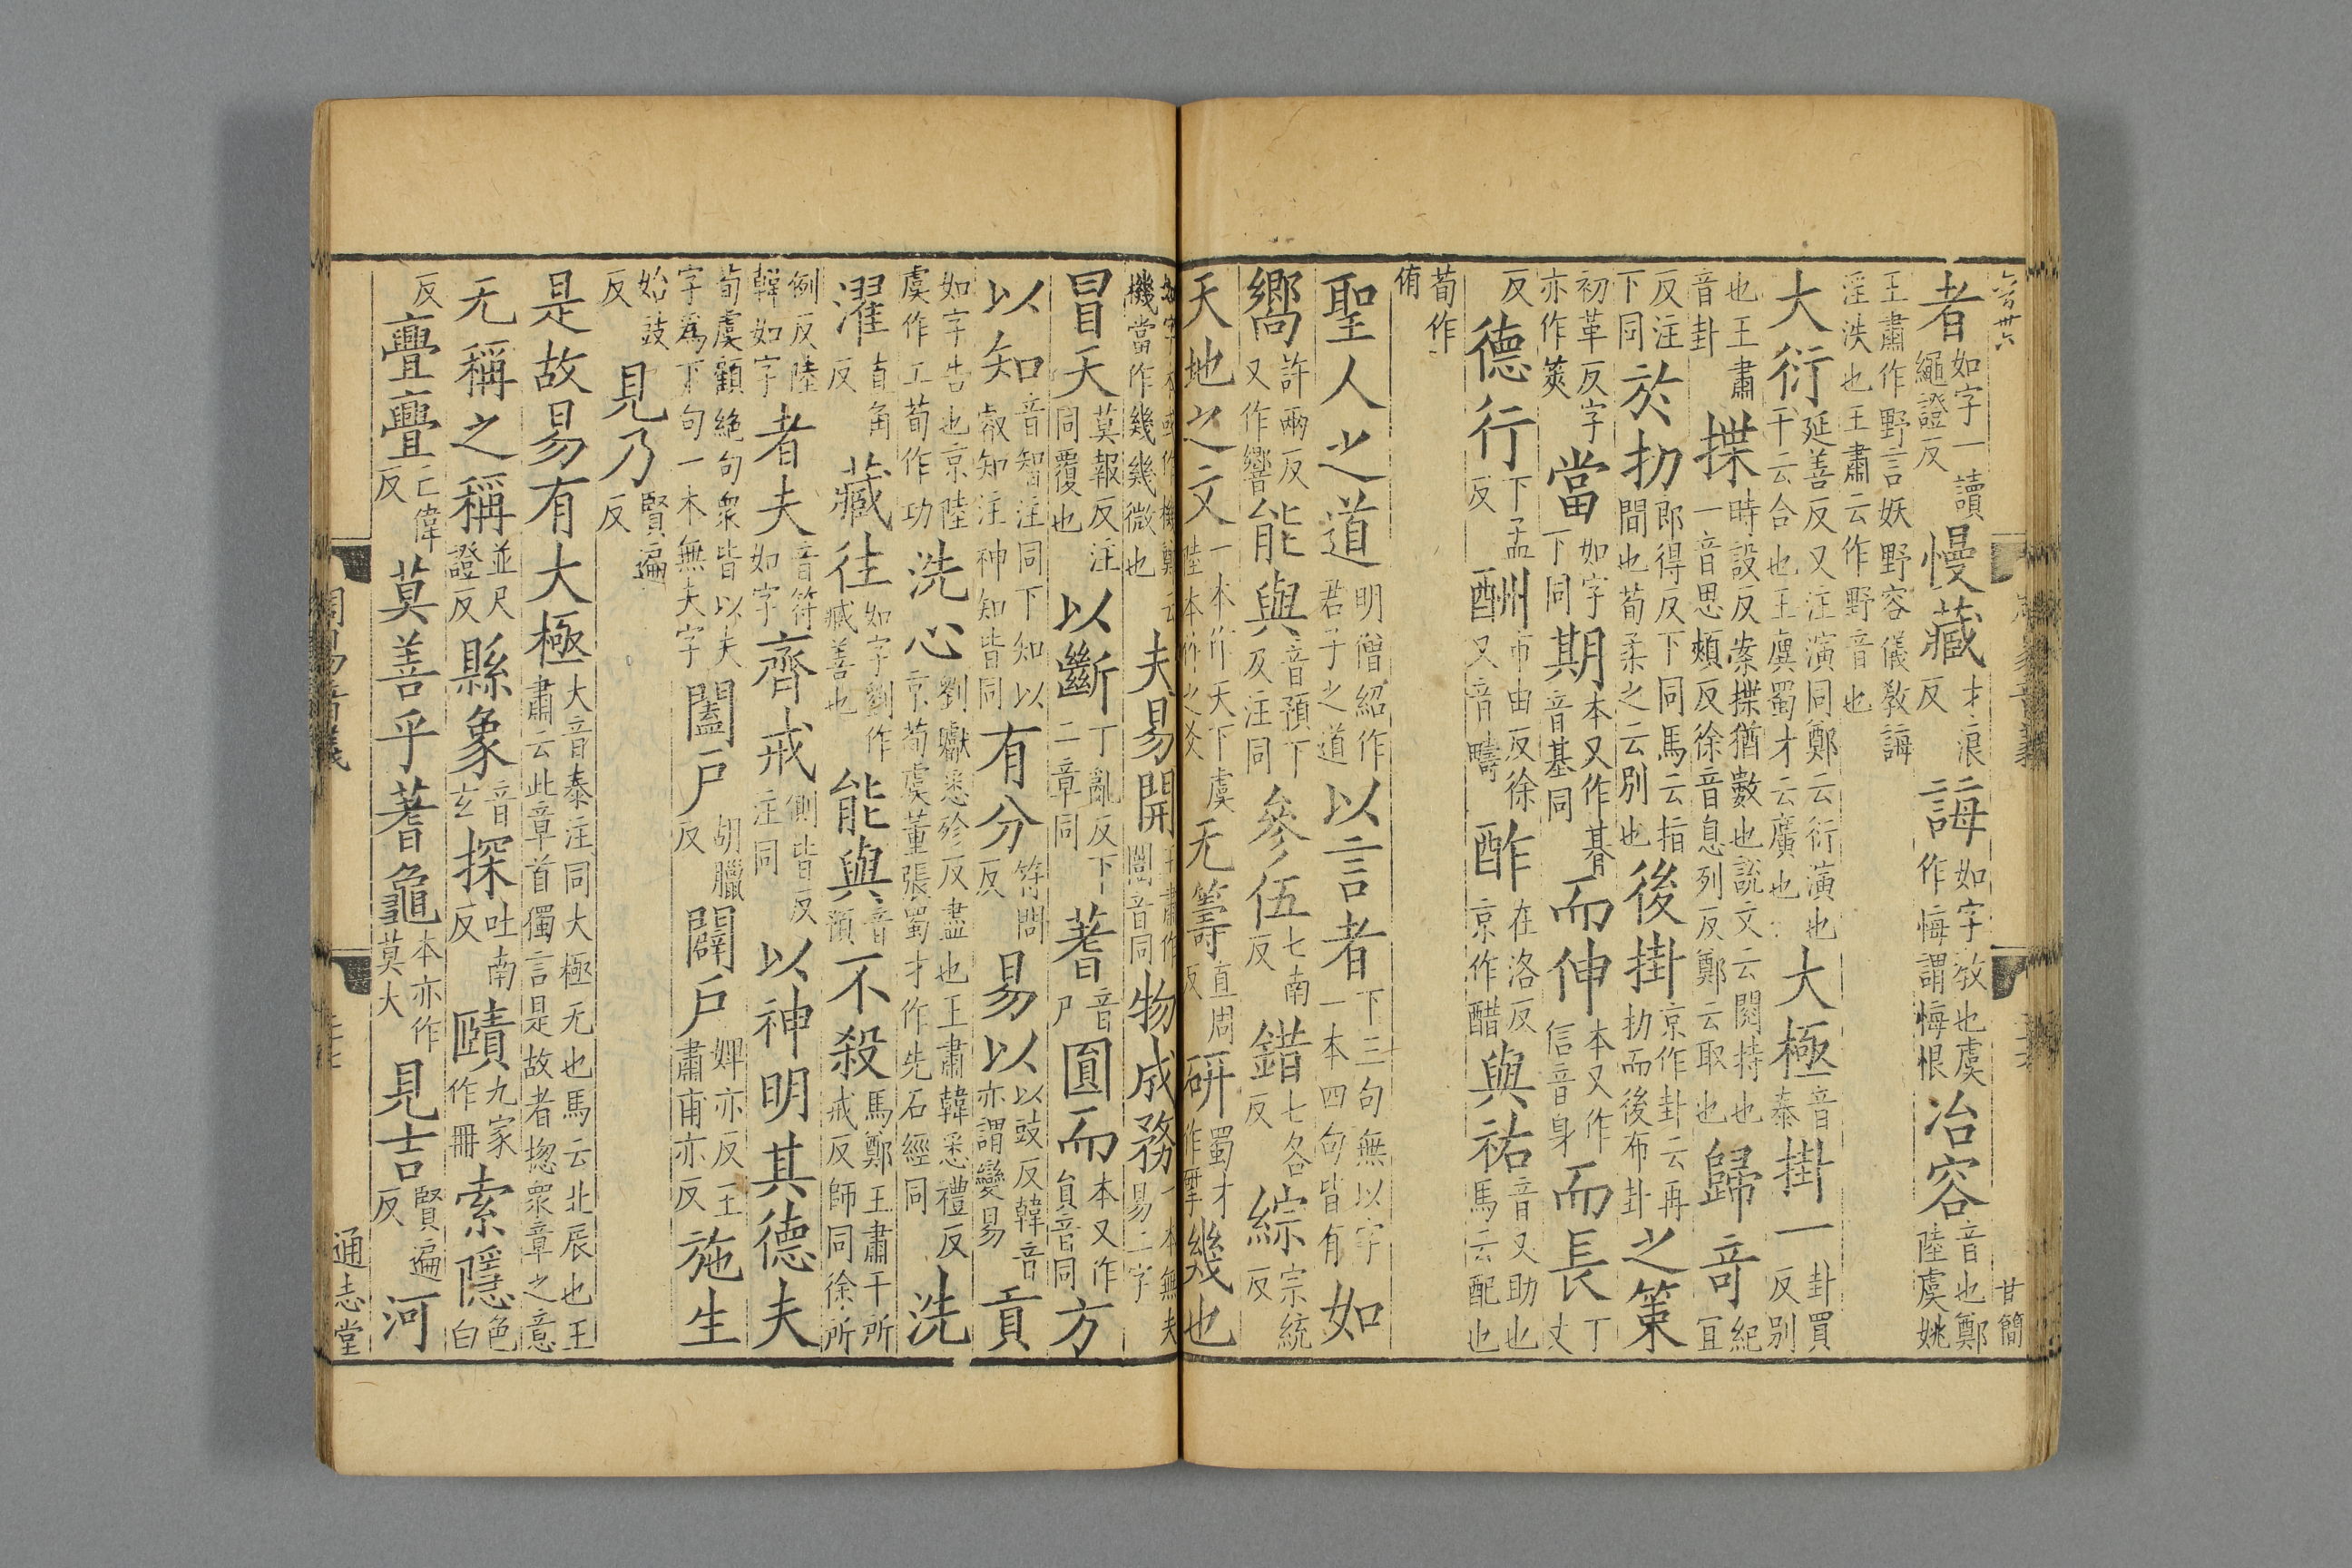 六百卄六
者如字一讀繩證反慢藏才浪反誨如字敎也虞作悔謂悔恨冶容音也鄭陸虞姚
王肅作野言妖野容儀敎誨淫泆也王肅云作野音也
大衍延善反又注演同鄭云衍演也干云合也王廙蜀才云廣也大極音泰掛一卦買反別
也王肅音卦揲時設反案揲猶數也說文云閱持也一音思頰反徐音息列反鄭云取也歸奇紀宜
反注下同於扐郎得反下同馬云指間也荀柔之云別也後掛京作卦云再扐而後布卦之策
初革反字亦作筴當如字下同期本又作朞音基同而伸本又作信音身而長丁丈
反德行下孟反酬市由反徐又音疇酢在洛反京作醋與祐音又助也馬云配也
荀作侑
聖人之道明僧紹作君子之道以言者下三句無以字一本四句皆有如
嚮許兩反又作響能與音預下及注同參伍七南反錯七各反綜宗統反
天地之文一本作天下虞陸本作之爻无籌直周反研蜀才作揅幾也
如字本或作機鄭云機當作幾幾微也夫易開王肅作闓音同物成務一本無夫易二字
冒天莫報反注同覆也以斷丁亂反下二章同蓍音尸圓而本又作員音同方
以知音智注同下知以叡知注神知皆同有分符問反易以以豉反韓音亦謂變易貢
如字告也京陸虞作工荀作功洗心劉瓛悉殄反盡也王肅韓悉禮反京荀虞董張蜀才作先石經同洗
濯直角反藏往如字劉作臧善也能與音預不殺馬鄭王肅干所戒反師同徐所
例反陸韓如字者夫音符如字齊戒側皆反注同以神明其德夫
荀虞顧絶句衆皆以夫字爲下句一本無夫字闔戶胡臘反闢戶婢亦反王肅甫亦反施生
始豉反見乃賢遍反
是故易有大極大音泰注同大極无也馬云北辰也王肅云此章首獨言是故者揔衆章之意
无稱之稱並尺證反縣象音玄探吐南反賾九家作冊索隱色白
反亹亹亡偉反莫善乎蓍龜本亦作莫大見吉賢遍反河
通志堂
甘簡